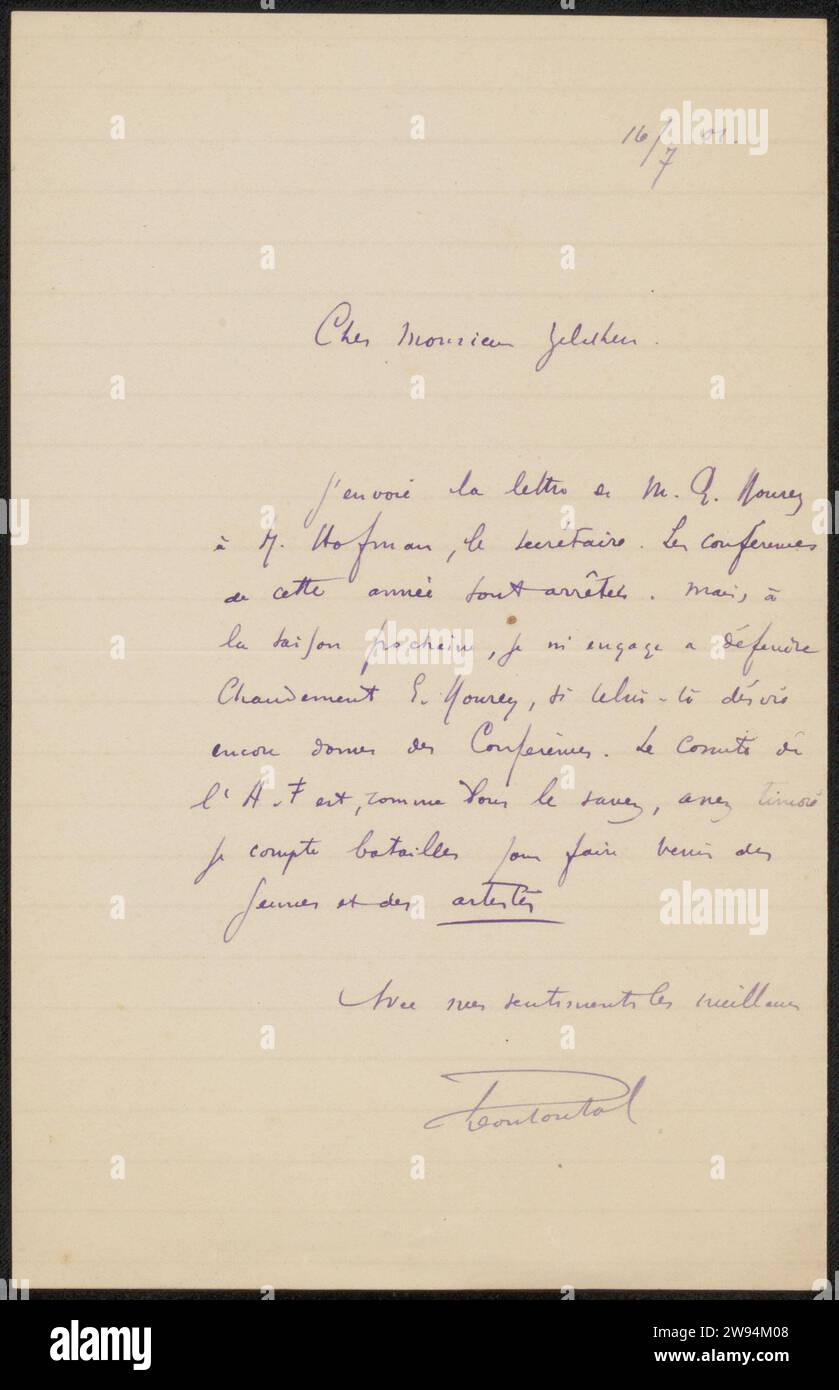 16/7 01.
Cher Monsieur Zilcken.
J'envoie la lettre de M. G. Mourey
à M. Hofman, le secrétaire. Les conférences
de cette année sont arrêtées. Mais, à
la saison prochaine, je m'engage a défendre
Chaudement G. Mourey, si celui-là désire
encore donner des Conférences. Le Comité de
l'A.F est, comme Vous le savez, assez timoré
je compte batailler pour faire venir des
jeunes et des artistes
Avec mes sentiments les meilleurs
alamy
Image ID: 2W94M08
www.alamy.com